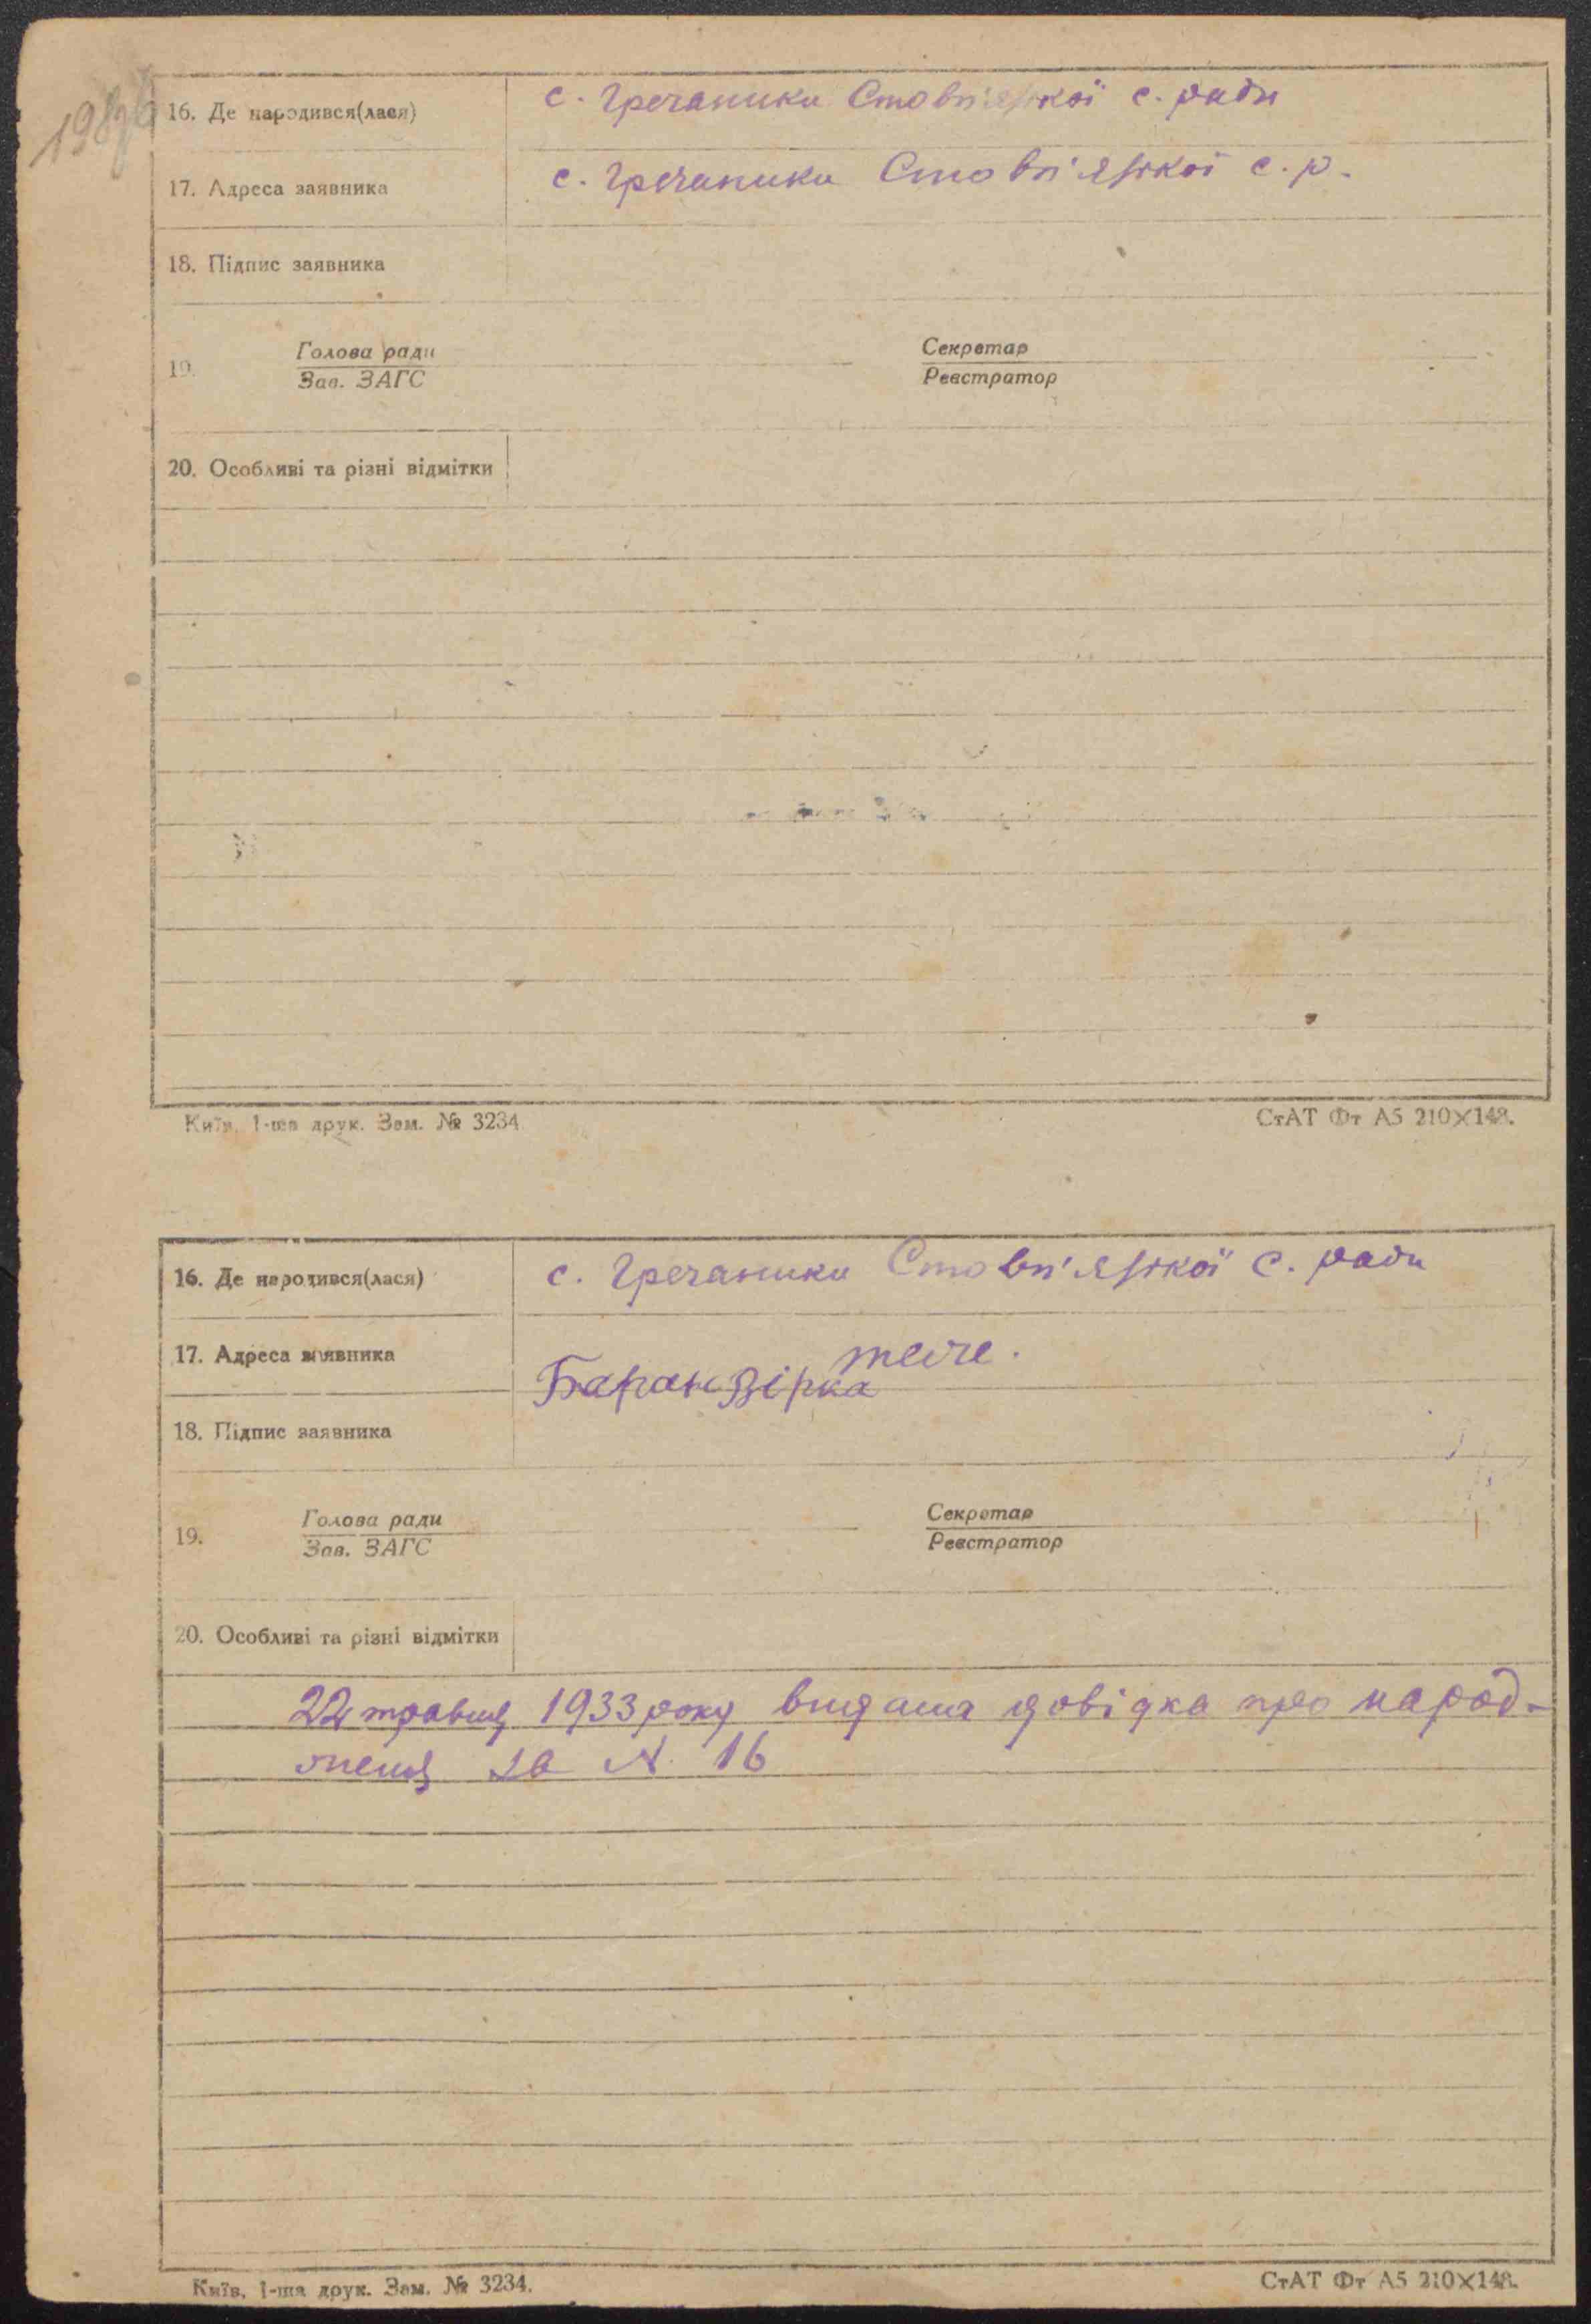 16. Де народився(лася) с. Гречаники Стовп'язької с. ради
17. Адреса заявника с. Гречаники Стовп'язької с. р.
18. Підпис заявника
19. Голова ради Секретар
Зав. ЗАГС Реєстратор
20. Особливі та різні відмітки
Київ, 1-ша друк. Зам. № 3234 СтАТ Фт А5 210×148.
16. Де народився(лася) с. Гречаники Стовп'язької с. ради
17. Адреса заявника теж.
Баран Вірка
18. Підпис заявника
19. Голова ради Секретар
Зав. ЗАГС Реєстратор
20. Особливі та різні відмітки
22 травня 1933 року видана довідка про народ-
женя за N 16
Київ, 1-ша друк. Зам. № 3234. СтАТ Фт А5 210×148.